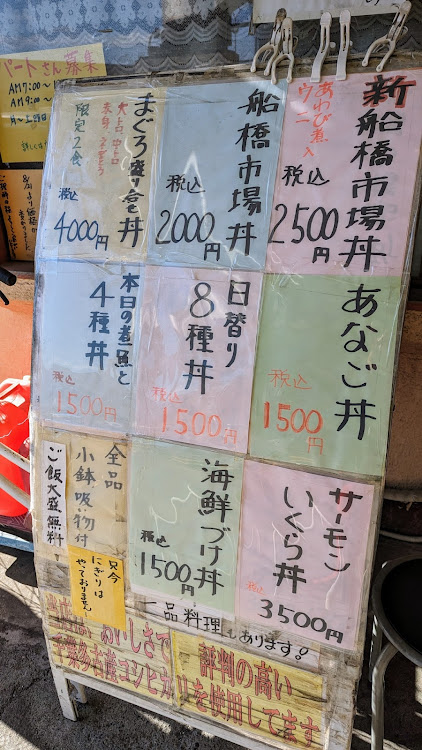 パートさん募集
AM7:00〜
AM9:00〜
新船橋市場丼
あわび煮入
ウニ
税込
2500円
船橋市場丼
税込
2000円
まぐろ盛り合せ丼
大とろ、中とろ
赤身、ネギとろ
限定2食
税込
4000円
あなご丼
税込
1500円
日替り
8種丼
税込
1500円
本日の煮魚と
4種丼
税込
1500円
サーモン
いくら丼
税込
3500円
海鮮づけ丼
税込
1500円
全品
小鉢吸い物付
ご飯大盛無料
只今
にぎりは
やっておりません
一品料理もあります!
当店はおいしさで
評判の高い
千葉多古産コシヒカリを使用してます